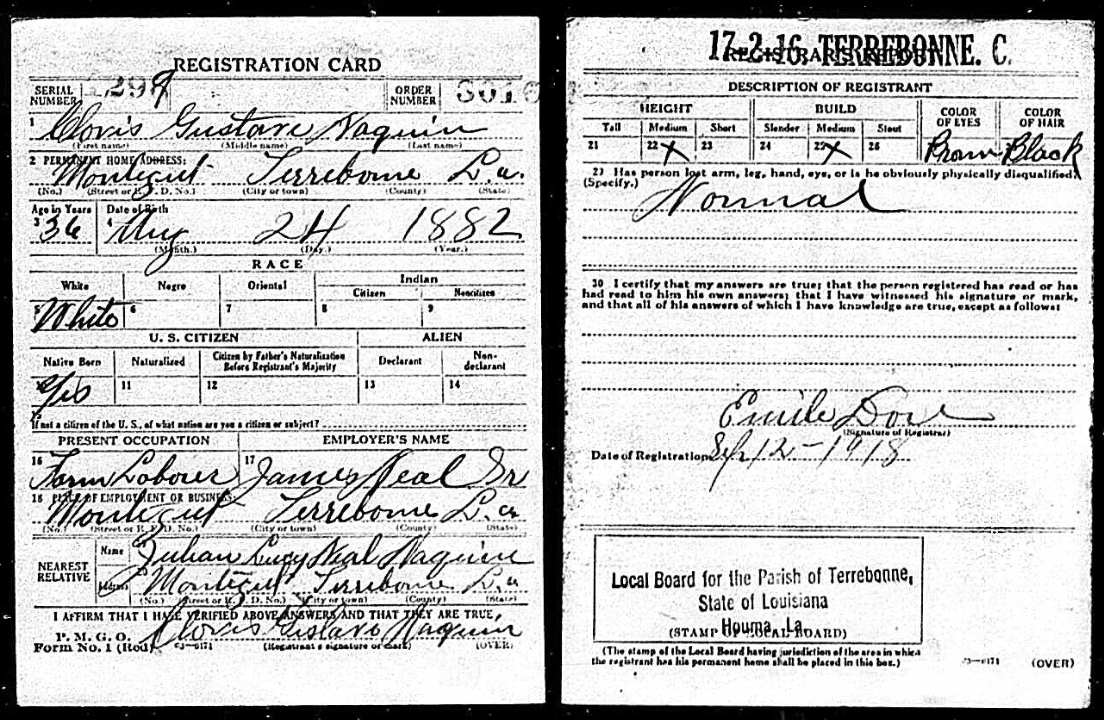 REGISTRATION CARD
SERIAL NUMBER
ORDER NUMBER
1 Clovis Gustave Naquin
(First name) (Middle name) (Last name)
2 PERMANENT HOME ADDRESS:
Montegut Terrebonne La.
(No.) (Street or R. F. D. No.) (City or town) (County) (State)
Age in Years Date of Birth
3 36 4 Aug 24 1882
(Month.) (Day.) (Year.)
RACE
White Negro Oriental Indian
Citizen Noncitizen
5 White 6 7 8 9
U. S. CITIZEN ALIEN
Native Born Naturalized Citizen by Father's Naturalization Before Registrant's Majority Declarant Non-declarant
10 Yes 11 12 13 14
15
If not a citizen of the U. S., of what nation are you a citizen or subject?
PRESENT OCCUPATION EMPLOYER'S NAME
16 Farm Laborer 17 James Neal Sr
18 PLACE OF EMPLOYMENT OR BUSINESS:
Montegut Terrebonne La
(No.) (Street or R. F. D. No.) (City or town) (County) (State)
NEAREST RELATIVE
Name Lucy Neal Naquin
Address Montegut Terrebonne La
(No.) (Street or R. F. D. No.) (City or town) (County) (State)
I AFFIRM THAT I HAVE VERIFIED ABOVE ANSWERS AND THAT THEY ARE TRUE,
P. M. G. O.
Form No. 1 (Red) Clovis Gustave Naquin
(Registrant's signature or mark) (OVER)
17-2-16. TERREBONNE. C.
DESCRIPTION OF REGISTRANT
HEIGHT BUILD COLOR OF EYES COLOR OF HAIR
Tall Medium Short Slender Medium Stout
21 22 X 23 24 25 X 26 Brown Black
29 Has person lost arm, leg, hand, eye, or is he obviously physically disqualified?
(Specify.) Normal
30 I certify that my answers are true; that the person registered has read or has
had read to him his own answers; that I have witnessed his signature or mark,
and that all of his answers of which I have knowledge are true, except as follows:
Emile
(Signature of Registrar)
Date of Registration Sep 12 - 1918
Local Board for the Parish of Terrebonne,
State of Louisiana
Houma, La.
(STAMP OF LOCAL BOARD)
(The stamp of the Local Board having jurisdiction of the area in which
the registrant has his permanent home shall be placed in this box.)
(OVER)